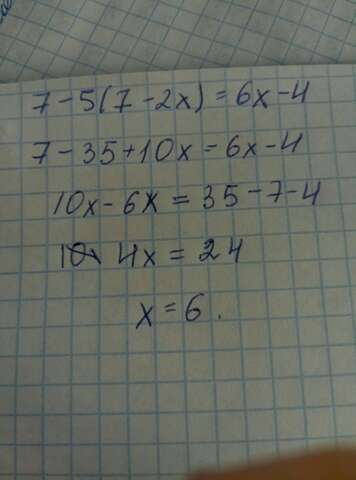 7-5(7-2x)=6x-4
7-35+10x=6x-4
10x-6x=35-7-4
4x=24
x=6.